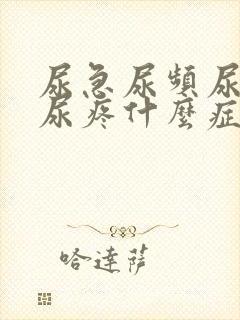 尿急尿頻尿
尿疼什麼症
哈達薩